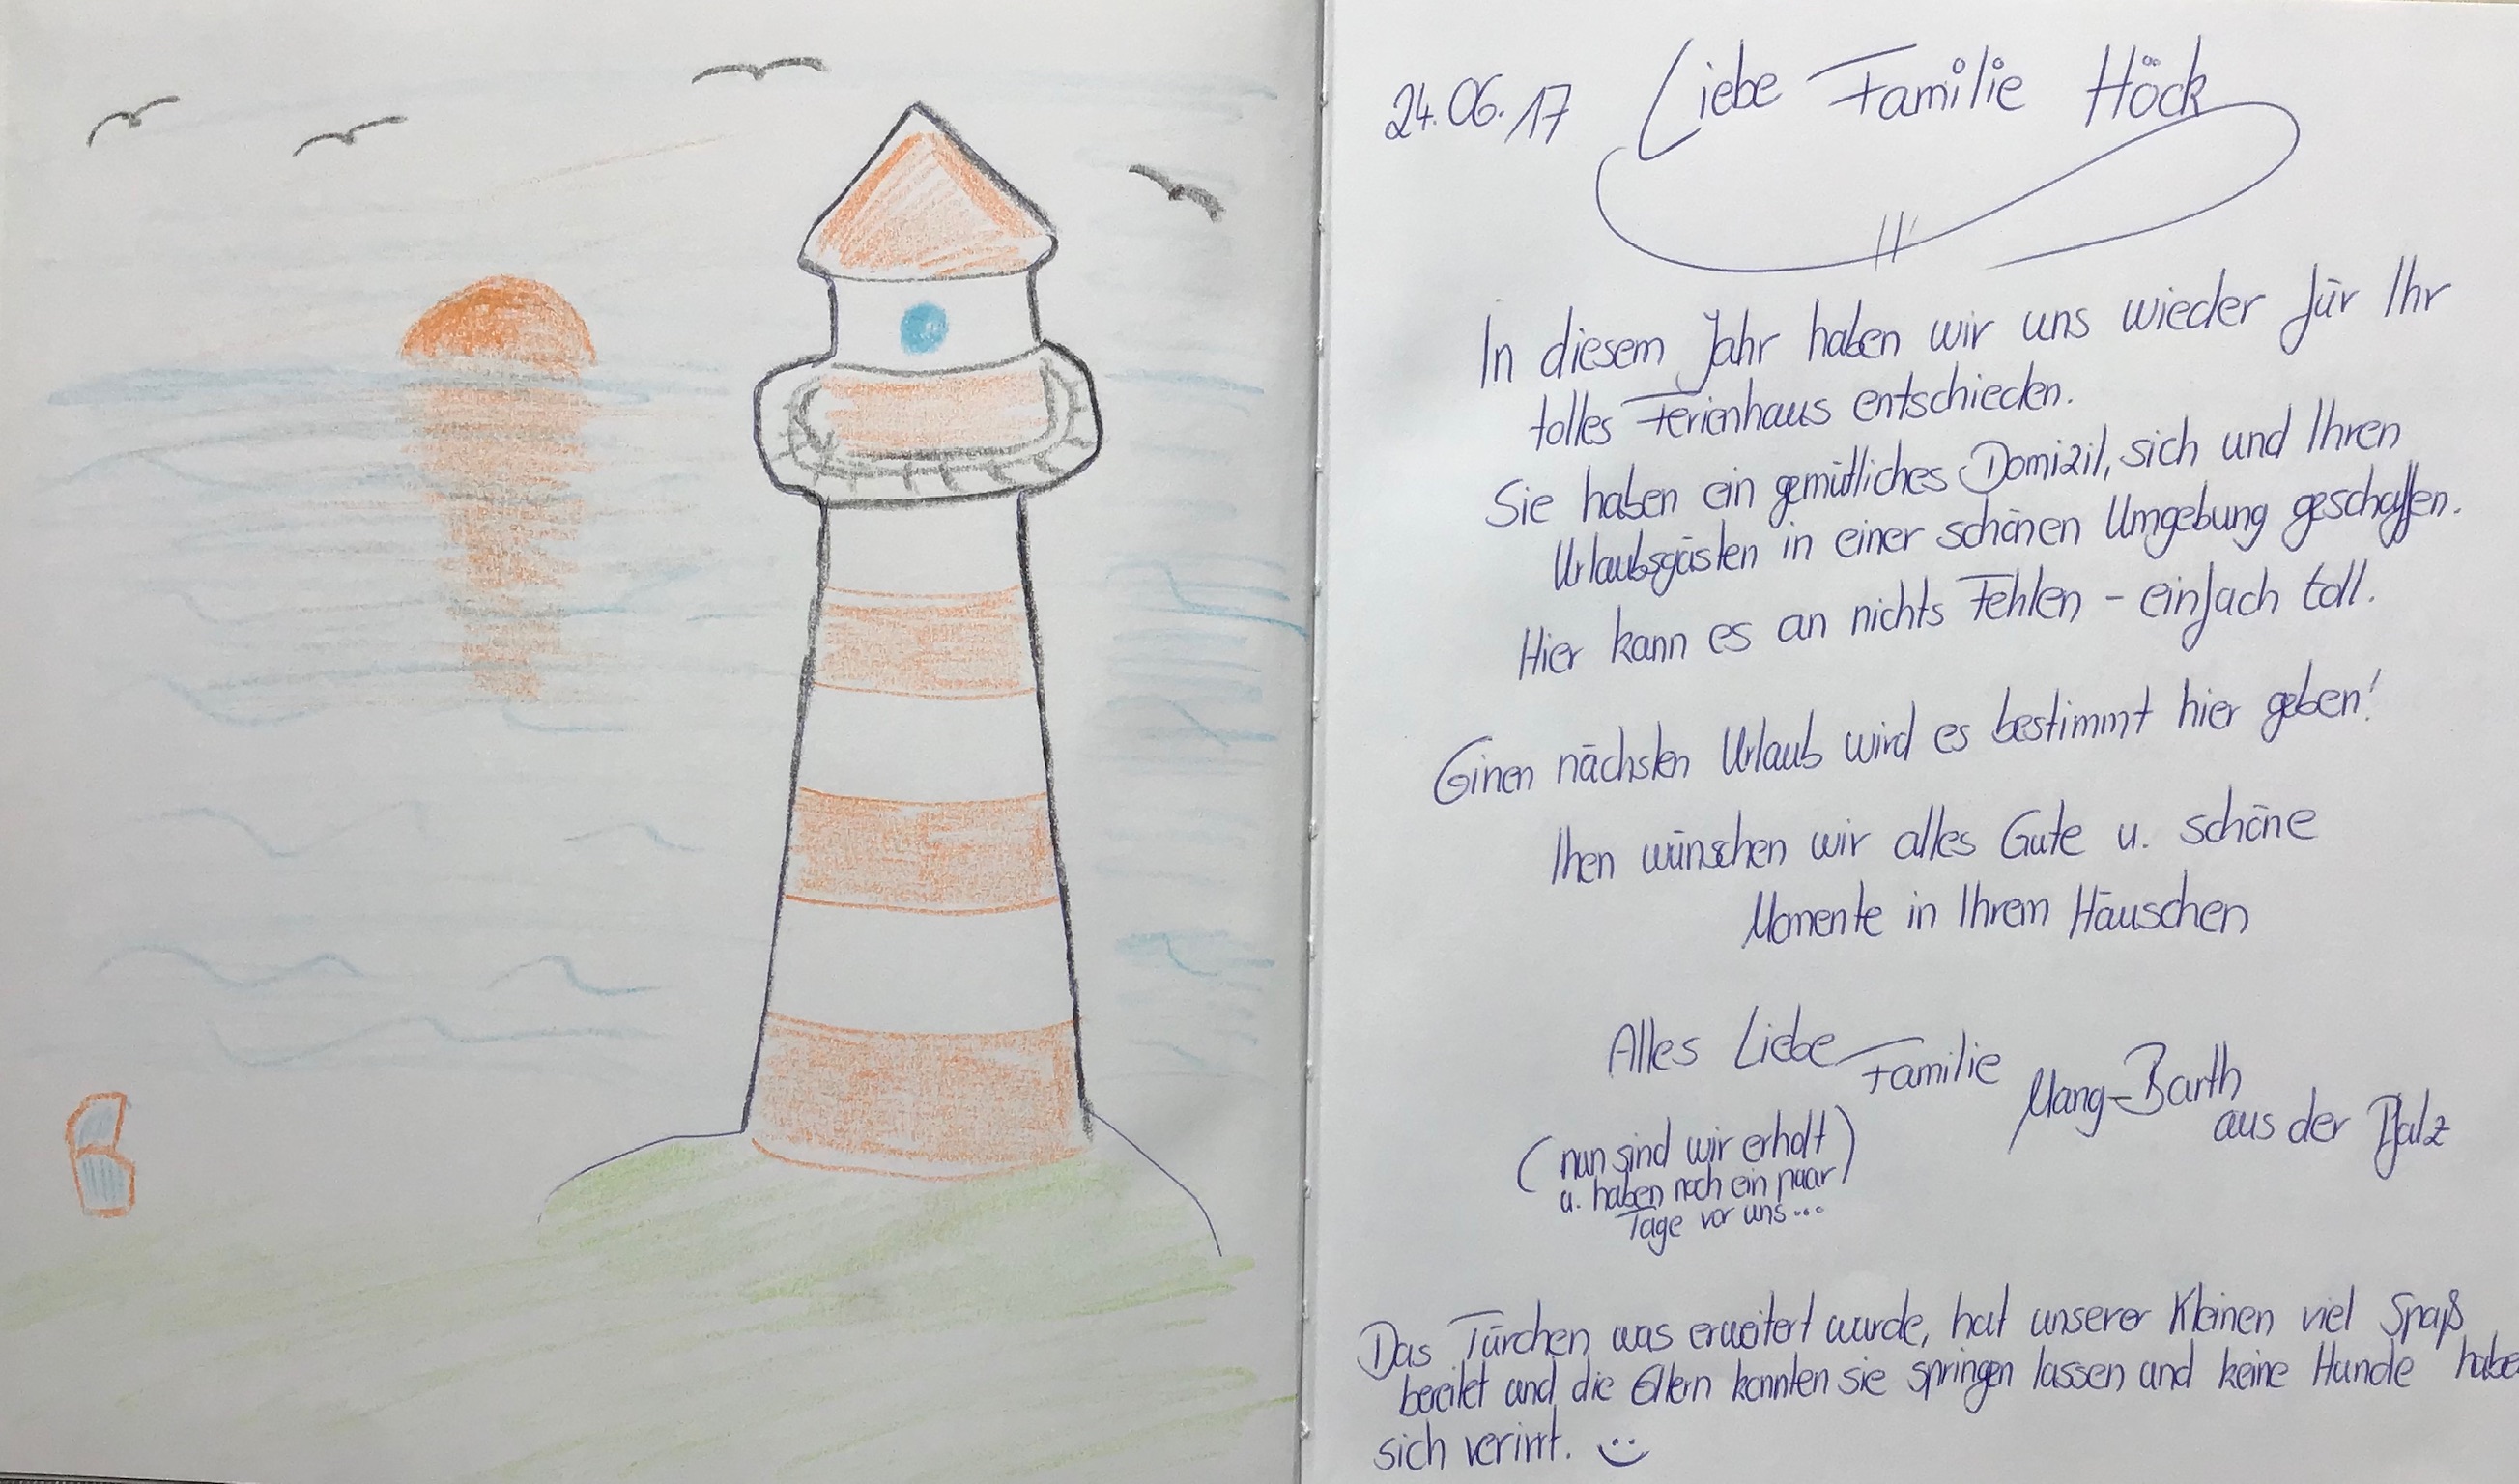 24.06.17 Liebe Familie Höck
In diesem Jahr haben wir uns wieder für Ihr
tolles Ferienhaus entschieden.
Sie haben ein gemütliches Domizil, sich und Ihren
Urlaubsgästen in einer schönen Umgebung geschaffen.
Hier kann es an nichts Fehlen - einfach toll.
Einen nächsten Urlaub wird es bestimmt hier geben!
Ihen wünschen wir alles Gute u. schöne
Momente in Ihrem Häuschen
Alles Liebe Familie Mang-Barth
aus der Pfalz
(nun sind wir erholt)
u. haben noch ein paar
Tage vor uns...
Das Türchen was erweitert wurde, hat unserer Kleinen viel Spaß
bereitet und die Eltern konnten sie springen lassen und keine Hunde habe
sich verirrt. :)